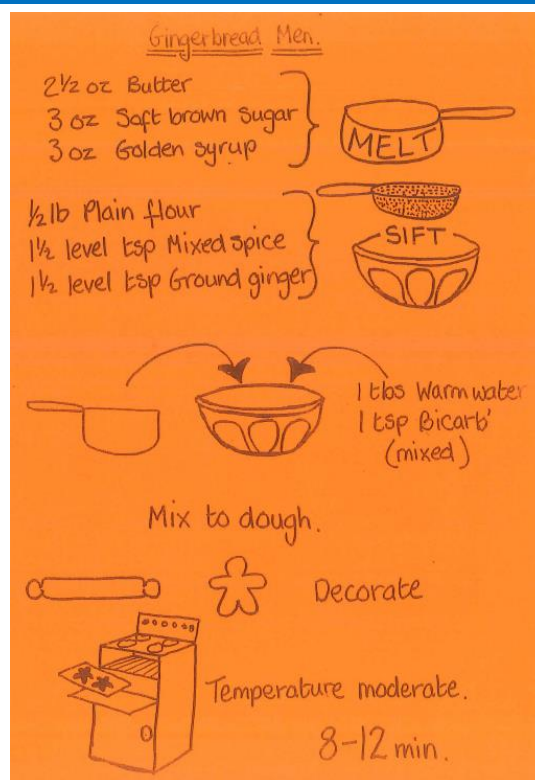 Gingerbread Men.
2½ oz Butter
3 oz Soft brown sugar
3 oz Golden syrup
MELT
½ lb Plain flour
1½ level tsp Mixed spice
1½ level tsp Ground ginger
SIFT
1 tbs Warm water
1 tsp Bicarb'
(mixed)
Mix to dough.
Decorate
Temperature moderate.
8-12 min.